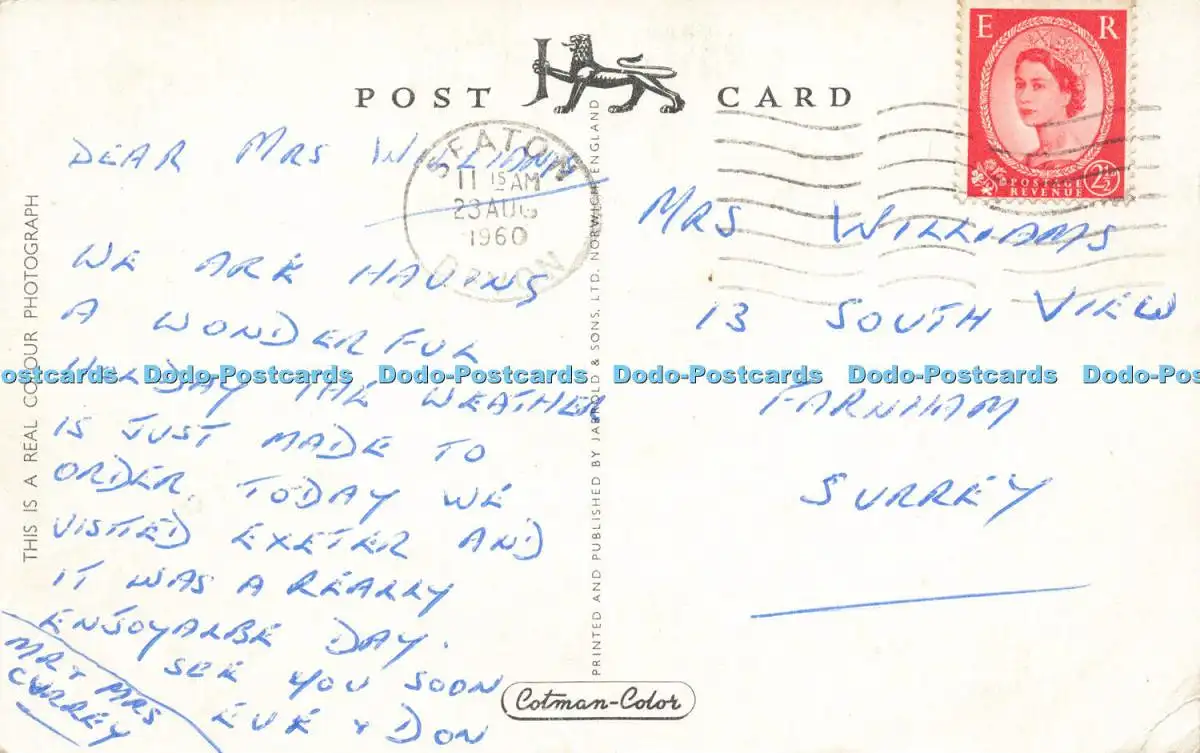 POST CARD
E R
POSTAGE
REVENUE
2½
SEATON
11 15 AM
23 AUG
1960
DEVON
DEAR MRS WILLIAMS
WE ARE HAVING
A WONDERFUL
HOLIDAY THE WEATHER
IS JUST MADE TO
ORDER. TODAY WE
VISITED EXETER AND
IT WAS A REALLY
ENJOYALBE DAY.
SEE YOU SOON
EVE + DON
MR + MRS
CURREY
MRS WILLIAMS
13 SOUTH VIEW
FARNHAM
SURREY
THIS IS A REAL COLOUR PHOTOGRAPH
PRINTED AND PUBLISHED BY JARROLD & SONS, LTD. NORWICH, ENGLAND
Cotman-Color
Dodo-Postcards Dodo-Postcards Dodo-Postcards Dodo-Postcards Dodo-Postcards